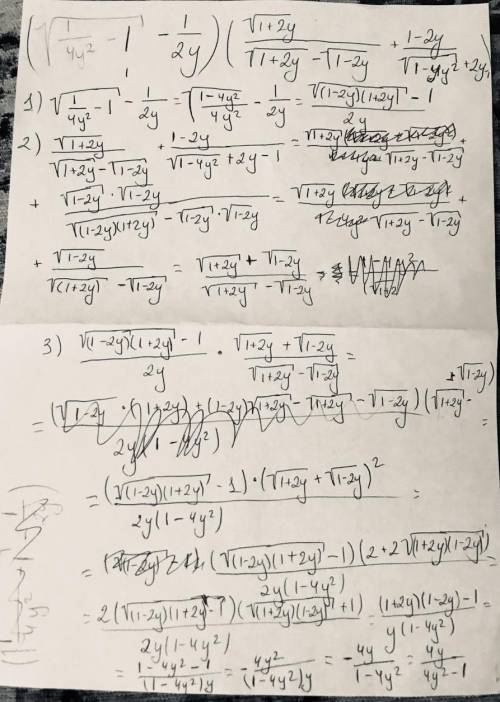 (√(1/4y² - 1) - 1/2y) (√(1+2y)/(√(1+2y) - √(1-2y)) + (1-2y)/(√(1-4y²) + 2y-1))
1) √(1/4y² - 1) - 1/2y = √((1-4y²)/4y²) - 1/2y = (√((1-2y)(1+2y)) - 1)/2y
2) √(1+2y)/(√(1+2y) - √(1-2y)) + (1-2y)/(√(1-4y²) + 2y - 1) = √(1+2y)/(√(1+2y) - √(1-2y)) +
+ (√(1-2y) · √(1-2y))/(√((1-2y)(1+2y)) - √(1-2y) · √(1-2y)) = √(1+2y)/(√(1+2y) - √(1-2y)) +
+ √(1-2y)/(√(1+2y) - √(1-2y)) = (√(1+2y) + √(1-2y))/(√(1+2y) - √(1-2y))
3) (√((1-2y)(1+2y)) - 1)/2y · (√(1+2y) + √(1-2y))/(√(1+2y) - √(1-2y)) =
= ((√((1-2y)(1+2y)) - 1) · (√(1+2y) + √(1-2y))²)/2y(1-4y²) =
= ((√((1-2y)(1+2y)) - 1)(2+2√((1+2y)(1-2y))))/2y(1-4y²) =
= 2(√((1-2y)(1+2y)) - 1)(√((1+2y)(1-2y)) + 1)/2y(1-4y²) = ((1+2y)(1-2y) - 1)/y(1-4y²) =
= (1-4y²-1)/(1-4y²)y = -4y²/(1-4y²)y = -4y/(1-4y²) = 4y/(4y²-1)